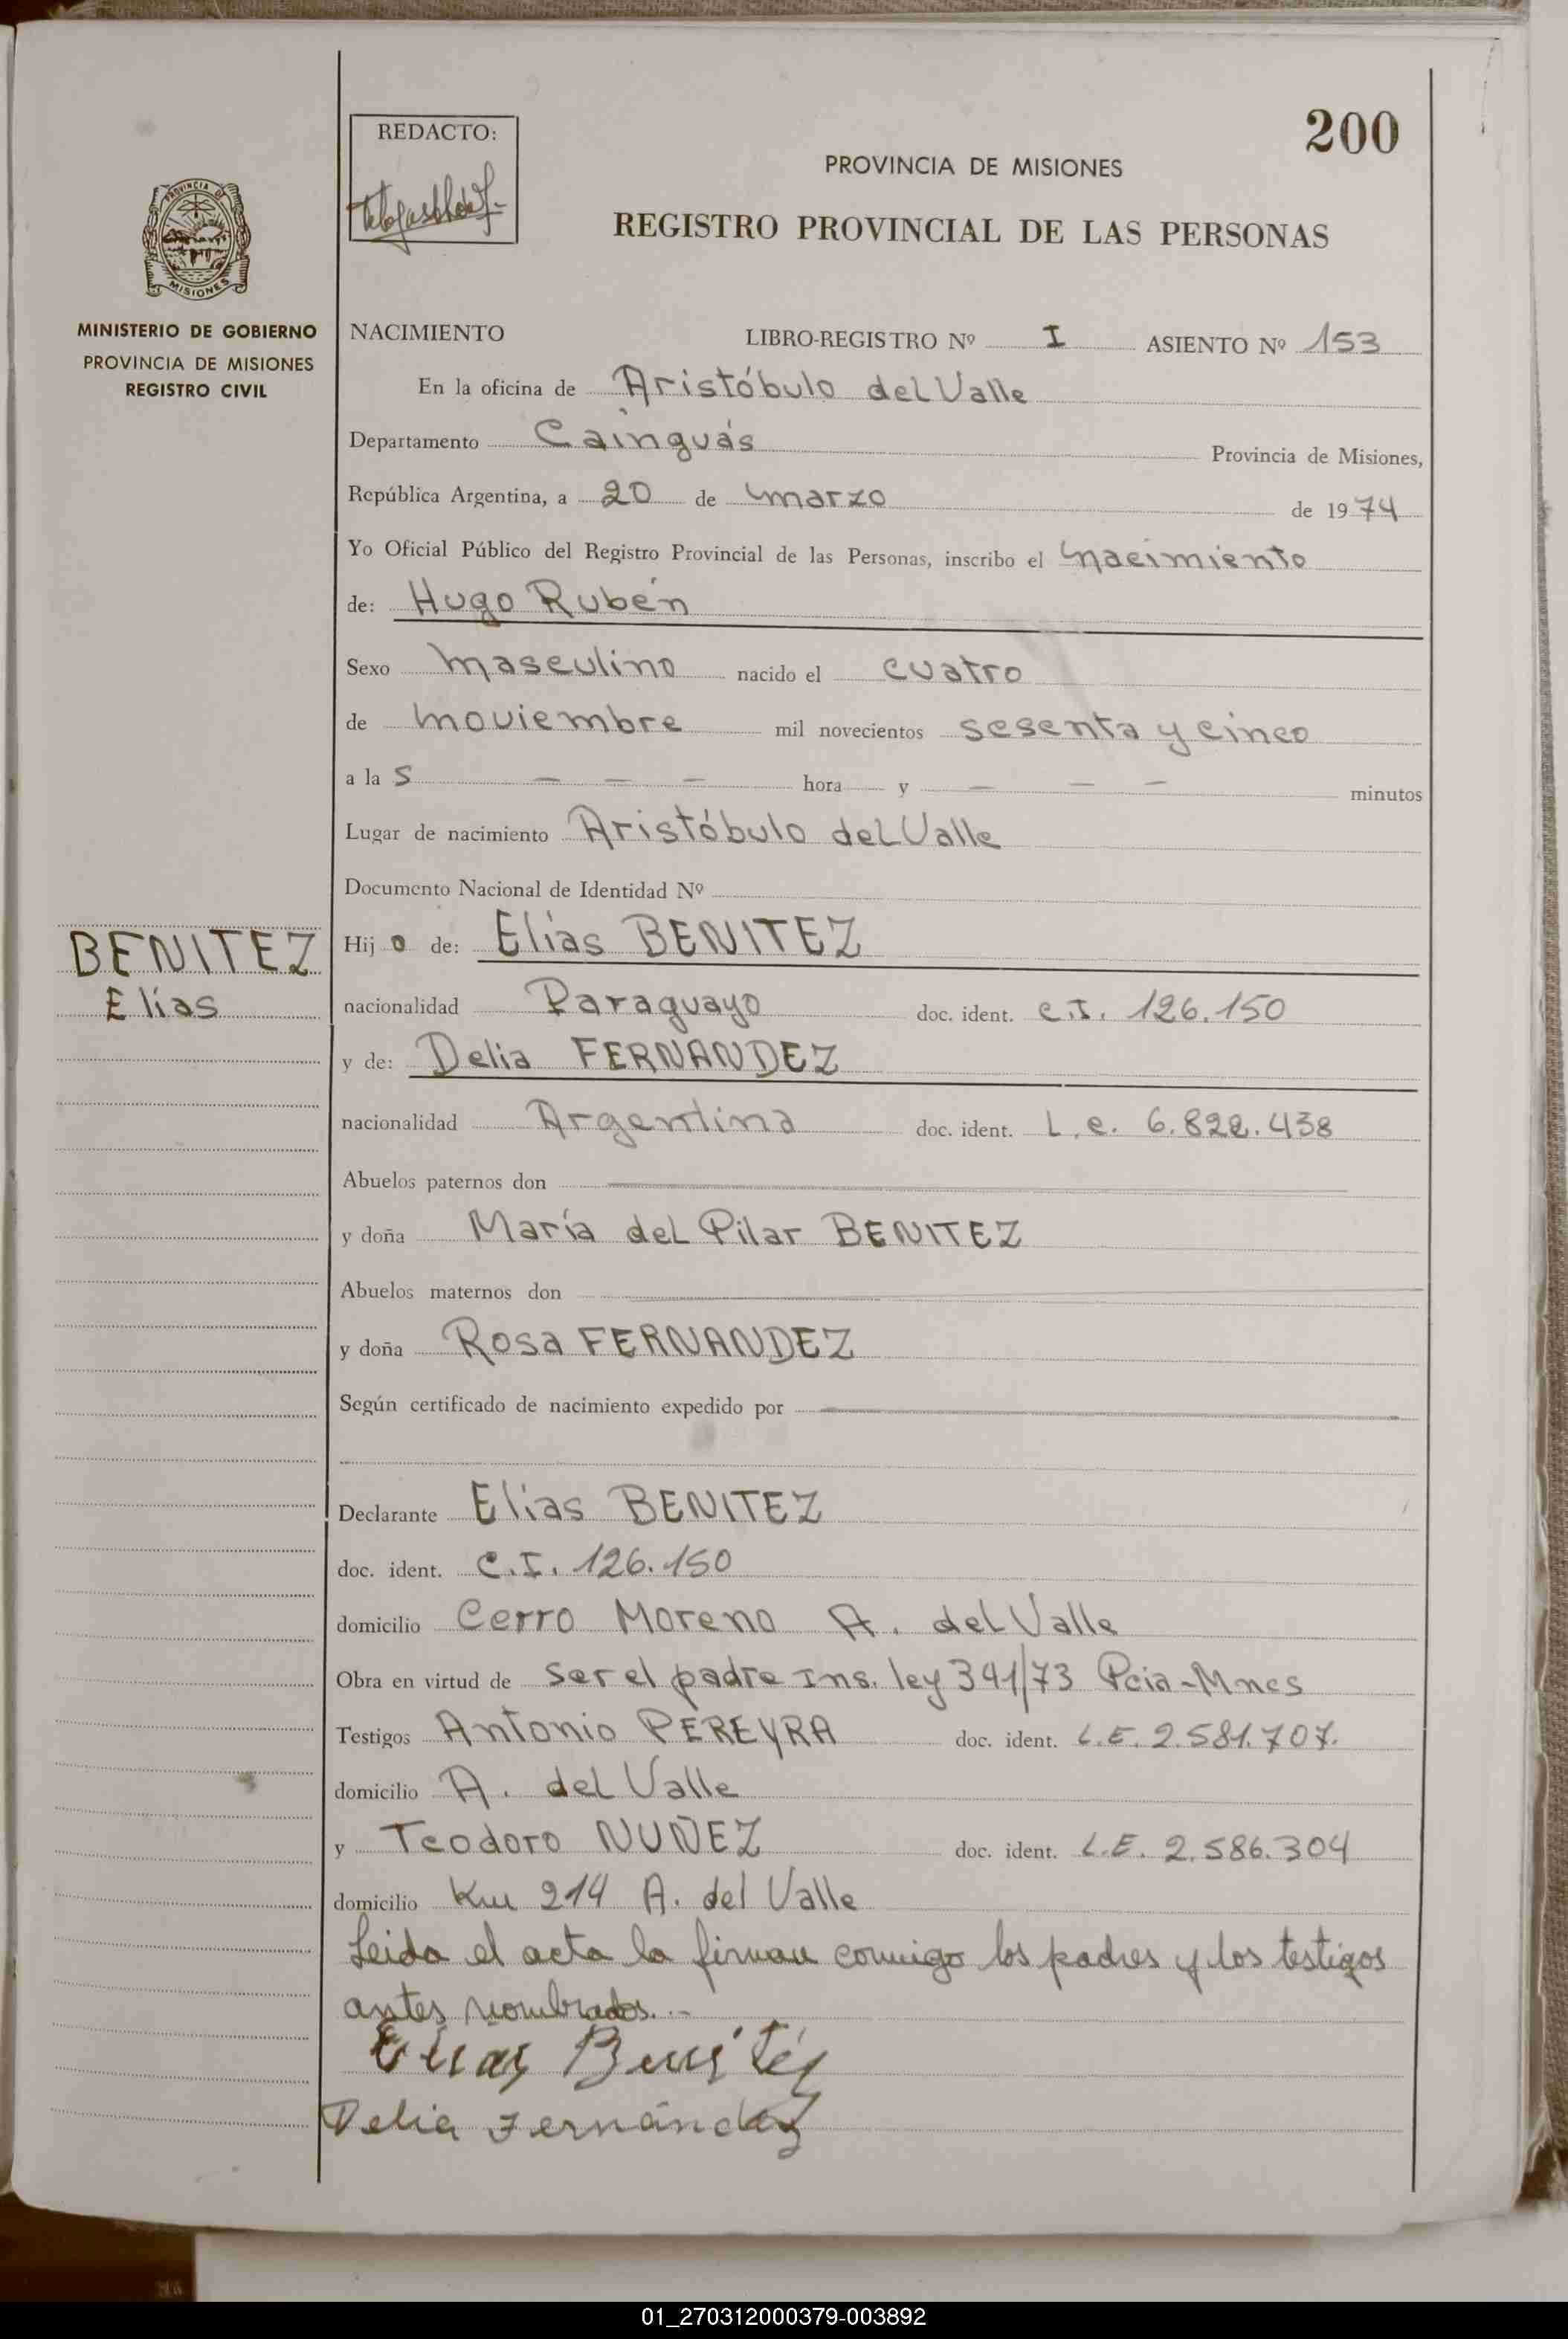 200
REDACTO:
PROVINCIA DE MISIONES
REGISTRO PROVINCIAL DE LAS PERSONAS
PROVINCIA DE
MISIONES
MINISTERIO DE GOBIERNO
PROVINCIA DE MISIONES
REGISTRO CIVIL
NACIMIENTO LIBRO-REGISTRO Nº I ASIENTO Nº 153
En la oficina de Aristóbulo del Valle
Departamento Cainguás Provincia de Misiones,
República Argentina, a 20 de marzo de 1974
Yo Oficial Público del Registro Provincial de las Personas, inscribo el nacimiento
de: Hugo Rubén
Sexo masculino nacido el cuatro
de noviembre mil novecientos sesenta y cinco
a la s — — — hora y — — — minutos
Lugar de nacimiento Aristóbulo del Valle
Documento Nacional de Identidad Nº
BENITEZ
Elías
Hij o de: Elías BENITEZ
nacionalidad Paraguayo doc. ident. C.I. 126.150
y de: Delia FERNANDEZ
nacionalidad Argentina doc. ident. L.C. 6.822.438
Abuelos paternos don
y doña María del Pilar BENITEZ
Abuelos maternos don
y doña Rosa FERNANDEZ
Según certificado de nacimiento expedido por
Declarante Elias BENITEZ
doc. ident. C.I. 126.150
domicilio Cerro Moreno A. del Valle
Obra en virtud de ser el padre Ins. ley 341/73 Pcia-Mnes
Testigos Antonio PEREYRA doc. ident. L.E. 2.581.707.
domicilio A. del Valle
y Teodoro NUÑEZ doc. ident. L.E. 2.586.304
domicilio Km 214 A. del Valle
Leida el acta la firman conmigo los padres y los testigos
antes nombrados.--
Elias Benítez
Delia Fernández
01_270312000379-003892